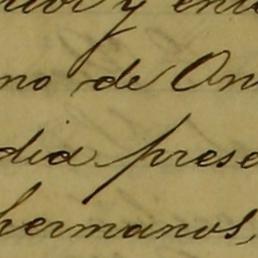 y
no de On
dia prese
hermanos,